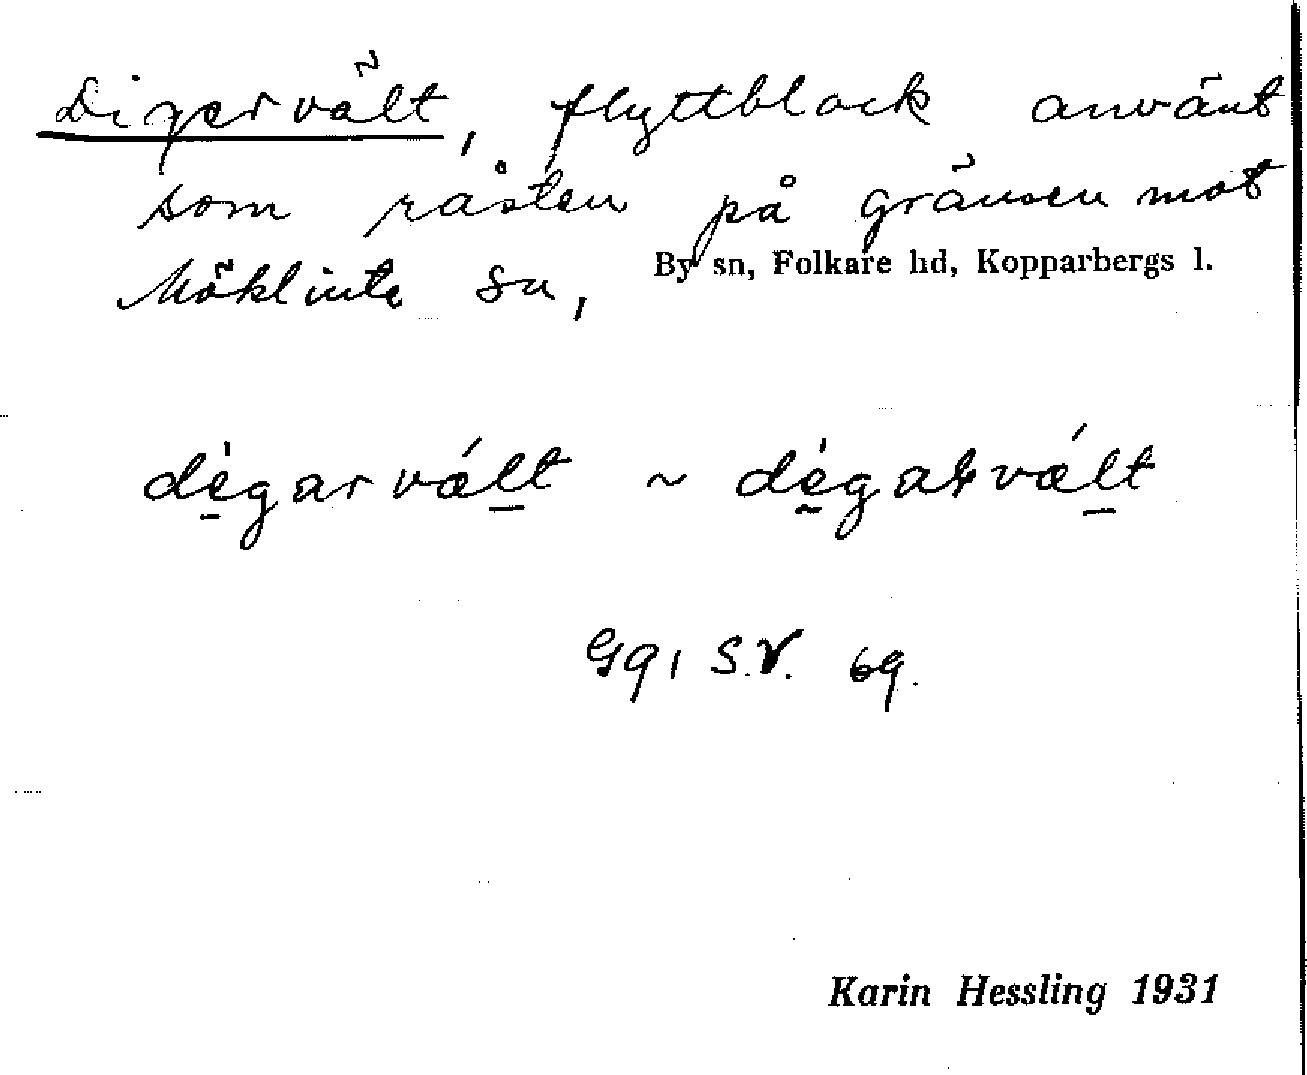 Digervält, flyttblock använt
som råsten på gränsen mot
Möklinta sn,
By sn, Folkare hd, Kopparbergs l.
dègarvǽlt ~ dègaṛvǽlt
Gg, S.V. 69.
Karin Hessling 1931